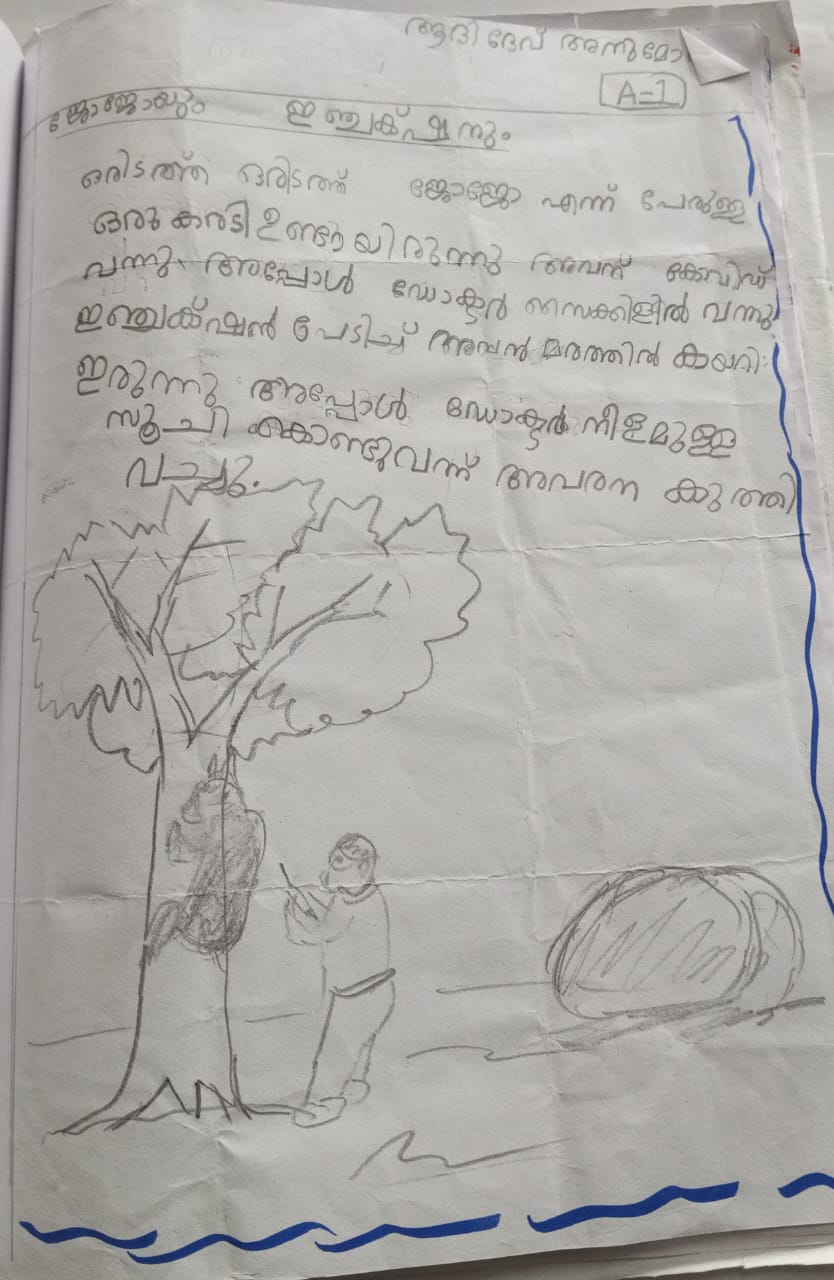 ആദിദേവ് അനുമോ
A-1
ജോജോയും ഇഞ്ചക്ഷനും
ഒരിടത്ത് ഒരിടത്ത് ജോജോ എന്ന് പേരുള്ള
ഒരു കരടി ഉണ്ടായിരുന്നു അവന് കോവിഡ്
വന്നു. അപ്പോൾ ഡോക്ടർ സൈക്കിളിൽ വന്നു
ഇഞ്ചക്ഷൻ പേടിച്ച് അവൻ മരത്തിൽ കയറി
ഇരുന്നു അപ്പോൾ ഡോക്ടർ നീളമുള്ള
സൂചി കൊണ്ടുവന്ന് അവനെ കുത്തി
വച്ചു.